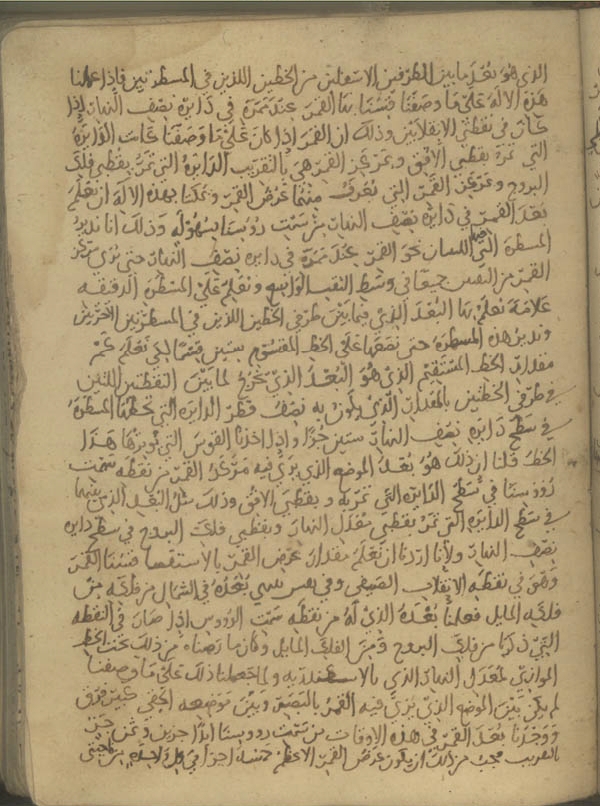 الذي هو بعد ما بين الطرفين الاسفلين من الخطين اللذين في المسطرتين فاذا عملنا
هذه الآلة على ما وصفنا قسنا بها القمر عند ممره في دايرة نصف النهار اذا
كان في نقطتي الانقلابين وذلك ان القمر اذا كان على ما وصفنا كانت الدايرة
التي تمر بقطبي الافق وبمركز القمر هي بالتقريب الدايرة التي تمر بقطبي فلك
البروج وبمركز القمر التي يعرف منها عرض القمر ويمكننا بهذه الآلة ان نعلم
بعد القمر في دايرة نصف النهار من سمت رؤوسنا بسهولة وذلك انا ندير
المسطرة التي فيها اللسان نحو القمر عند ممره في دايرة نصف النهار حتى يرى مركز
القمر من الثقبين جميعا في وسط الثقب الواسع ونعلم على المسطرة الدقيقة
علامة نعلم بها البعد الذي فيما بين طرفي الخطين اللذين في المسطرتين الاخريين
وندير هذه المسطرة حتى نضعها على الخط المقسوم بستين قسما لكي نعلم كم
مقدار الخط المستقيم الذي هو البعد الذي يخرج لما بين النقطتين اللتين
في طرفي الخطين بالمقدار الذي يكون به نصف قطر الدايرة التي تخطها المسطرة
في سطح دايرة نصف النهار ستين جزءا واذا اخذنا القوس التي يوترها هذا
الخط قلنا ان ذلك هو بعد الموضع الذي يرى فيه مركز القمر من نقطة سمت
رؤوسنا في سطح الدايرة التي تمر به وبقطبي الافق وذلك مثل البعد الذي بينهما
في سطح الدايرة التي تمر بقطبي معدل النهار وبقطبي فلك البروج في سطح دايرة
نصف النهار ولأنا اردنا ان نعلم مقدار عرض القمر بالاستقصا قسنا القمر
وهو في نقطة الانقلاب الصيفي وفي بعده في الشمال من فلكه من
فلكه المايل فعلمنا بعده الذي له من نقطة سمت الرؤوس اذا صار في النقطة
التي ذكرنا من فلك البروج ومن الفلك المايل وكان ما رصدناه من ذلك تحت الخط
الموازي لمعدل النهار الذي بالاسكندرية ولما جعلنا ذلك على ما وصفنا
لم يكن بين الموضع الذي يرى فيه القمر بالبصر وبين موضعه الحقي كبير فرق
ووجدنا بعد القمر في هذه الاوقات من سمت رؤوسنا ابدا جزئين وثمن جزء
بالتقريب فيجب من ذلك ان يكون عرض القمر الاعظم خمسة اجزا في كلا